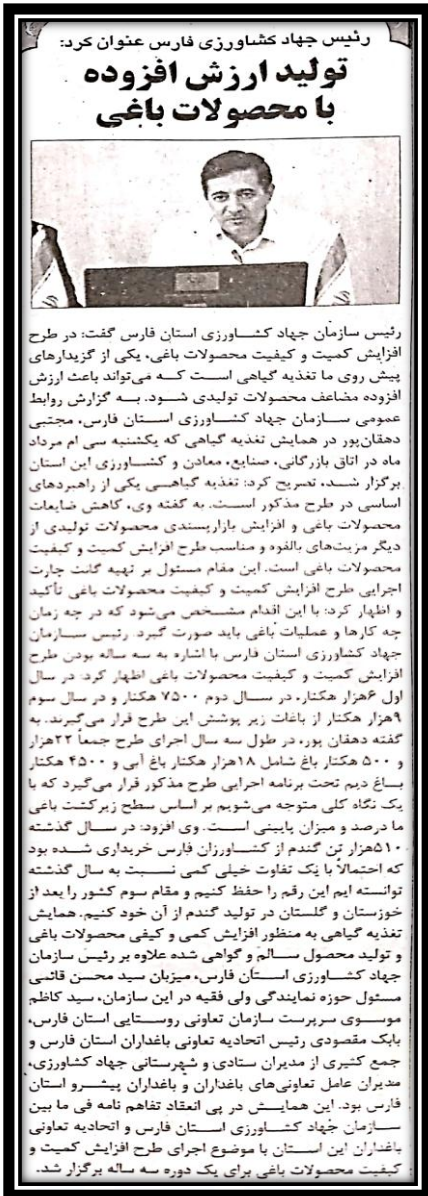 رئیس جهاد کشاورزی فارس عنوان کرد:
تولید ارزش افزوده
با محصولات باغی
رئیس سازمان جهاد کشاورزی استان فارس گفت: در طرح
افزایش کمیت و کیفیت محصولات باغی، یکی از گزیدارهای
پیش روی ما تغذیه گیاهی است که می‌تواند باعث ارزش
افزوده مضاعف محصولات تولیدی شود. به گزارش روابط
عمومی سازمان جهاد کشاورزی استان فارس، مجتبی
دهقان‌پور در همایش تغذیه گیاهی که یکشنبه سی ام مرداد
ماه در اتاق بازرگانی، صنایع، معادن و کشاورزی این استان
برگزار شد، تصریح کرد: تغذیه گیاهی یکی از راهبردهای
اساسی در طرح مذکور است. به گفته وی، کاهش ضایعات
محصولات باغی و افزایش بازارپسندی محصولات تولیدی از
دیگر مزیت‌های بالقوه و مناسب طرح افزایش کمیت و کیفیت
محصولات باغی است. این مقام مسئول بر تهیه گانت چارت
اجرایی طرح افزایش کمیت و کیفیت محصولات باغی تأکید
و اظهار کرد: با این اقدام مشخص می‌شود که در چه زمان
چه کارها و عملیات باغی باید صورت گیرد. رئیس سازمان
جهاد کشاورزی استان فارس با اشاره به سه ساله بودن طرح
افزایش کمیت و کیفیت محصولات باغی اظهار کرد: در سال
اول ۶هزار هکتار، در سال دوم ۷۵۰۰ هکتار و در سال سوم
۹هزار هکتار از باغات زیر پوشش این طرح قرار می‌گیرند. به
گفته دهقان پور، در طول سه سال اجرای طرح جمعاً ۲۲هزار
و ۵۰۰ هکتار باغ شامل ۱۸هزار هکتار باغ آبی و ۴۵۰۰ هکتار
باغ دیم تحت برنامه اجرایی طرح مذکور قرار می‌گیرد که با
یک نگاه کلی متوجه می‌شویم بر اساس سطح زیرکشت باغی
ما درصد و میزان پایینی است. وی افزود: در سال گذشته
۵۱۰هزار تن گندم از کشاورزان فارس خریداری شده بود
که احتمالاً با یک تفاوت خیلی کمی نسبت به سال گذشته
توانسته ایم این رقم را حفظ کنیم و مقام سوم کشور را بعد از
خوزستان و گلستان در تولید گندم از آن خود کنیم. همایش
تغذیه گیاهی به منظور افزایش کمی و کیفی محصولات باغی
و تولید محصول سالم و گواهی شده علاوه بر رئیس سازمان
جهاد کشاورزی استان فارس، میزبان سید محسن قائمی
مسئول حوزه نمایندگی ولی فقیه در این سازمان، سید کاظم
موسوی سرپرست سازمان تعاونی روستایی استان فارس،
بابک مقصودی رئیس اتحادیه تعاونی باغداران استان فارس و
جمع کثیری از مدیران ستادی و شهرستانی جهاد کشاورزی،
مدیران عامل تعاونی‌های باغداران و باغداران پیشرو استان
فارس بود. این همایش در پی انعقاد تفاهم نامه فی ما بین
سازمان جهاد کشاورزی استان فارس و اتحادیه تعاونی
باغداران این استان با موضوع اجرای طرح افزایش کمیت و
کیفیت محصولات باغی برای یک دوره سه ساله برگزار شد.